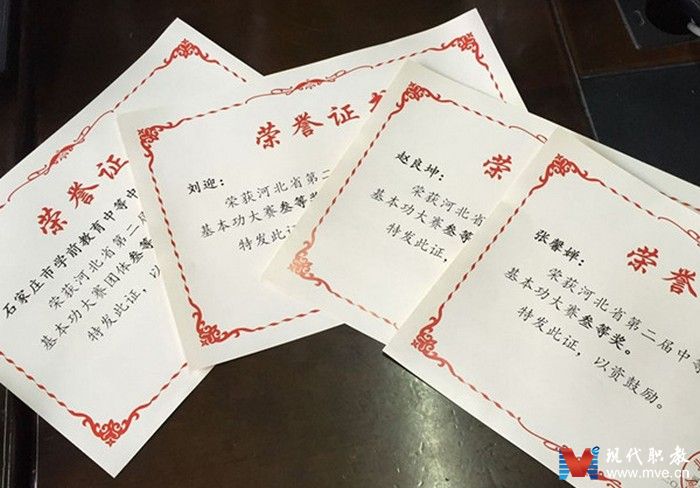 荣誉证
石家庄市学前教育中等中
荣获河北省第二届
基本功大赛团体叁等
特发此证，以
荣誉证书
刘迎：
荣获河北省第二
基本功大赛叁等奖
特发此证
荣
赵良坤：
荣获河北省
基本功大赛叁等
特发此证，
荣誉
张馨婵：
荣获河北省第二届中等
基本功大赛叁等奖。
特发此证，以资鼓励。
现代职教
www.mve.cn